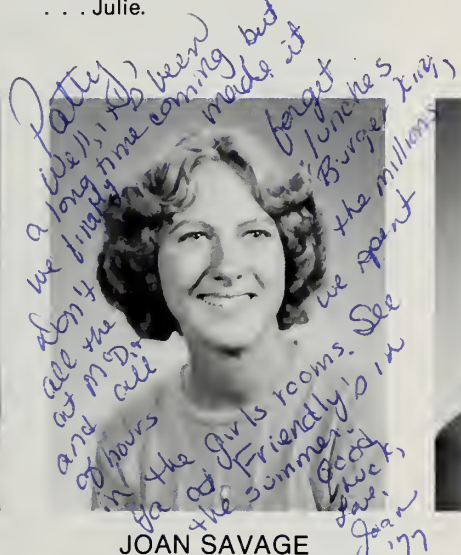 . . . Julie.
Patty,
Well, it's been
a long time coming but
we finally made it
Don't forget
all the lunches
at McD's, Burger King,
and all the millions
of hours we spent
in the girls rooms. See
ya at Friendly's in
the summer. Good
Luck,
Love,
Joan
'77
JOAN SAVAGE